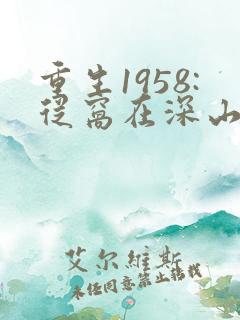 重生1958:
从窝在深山
艾尔维斯
未经同意禁止转载